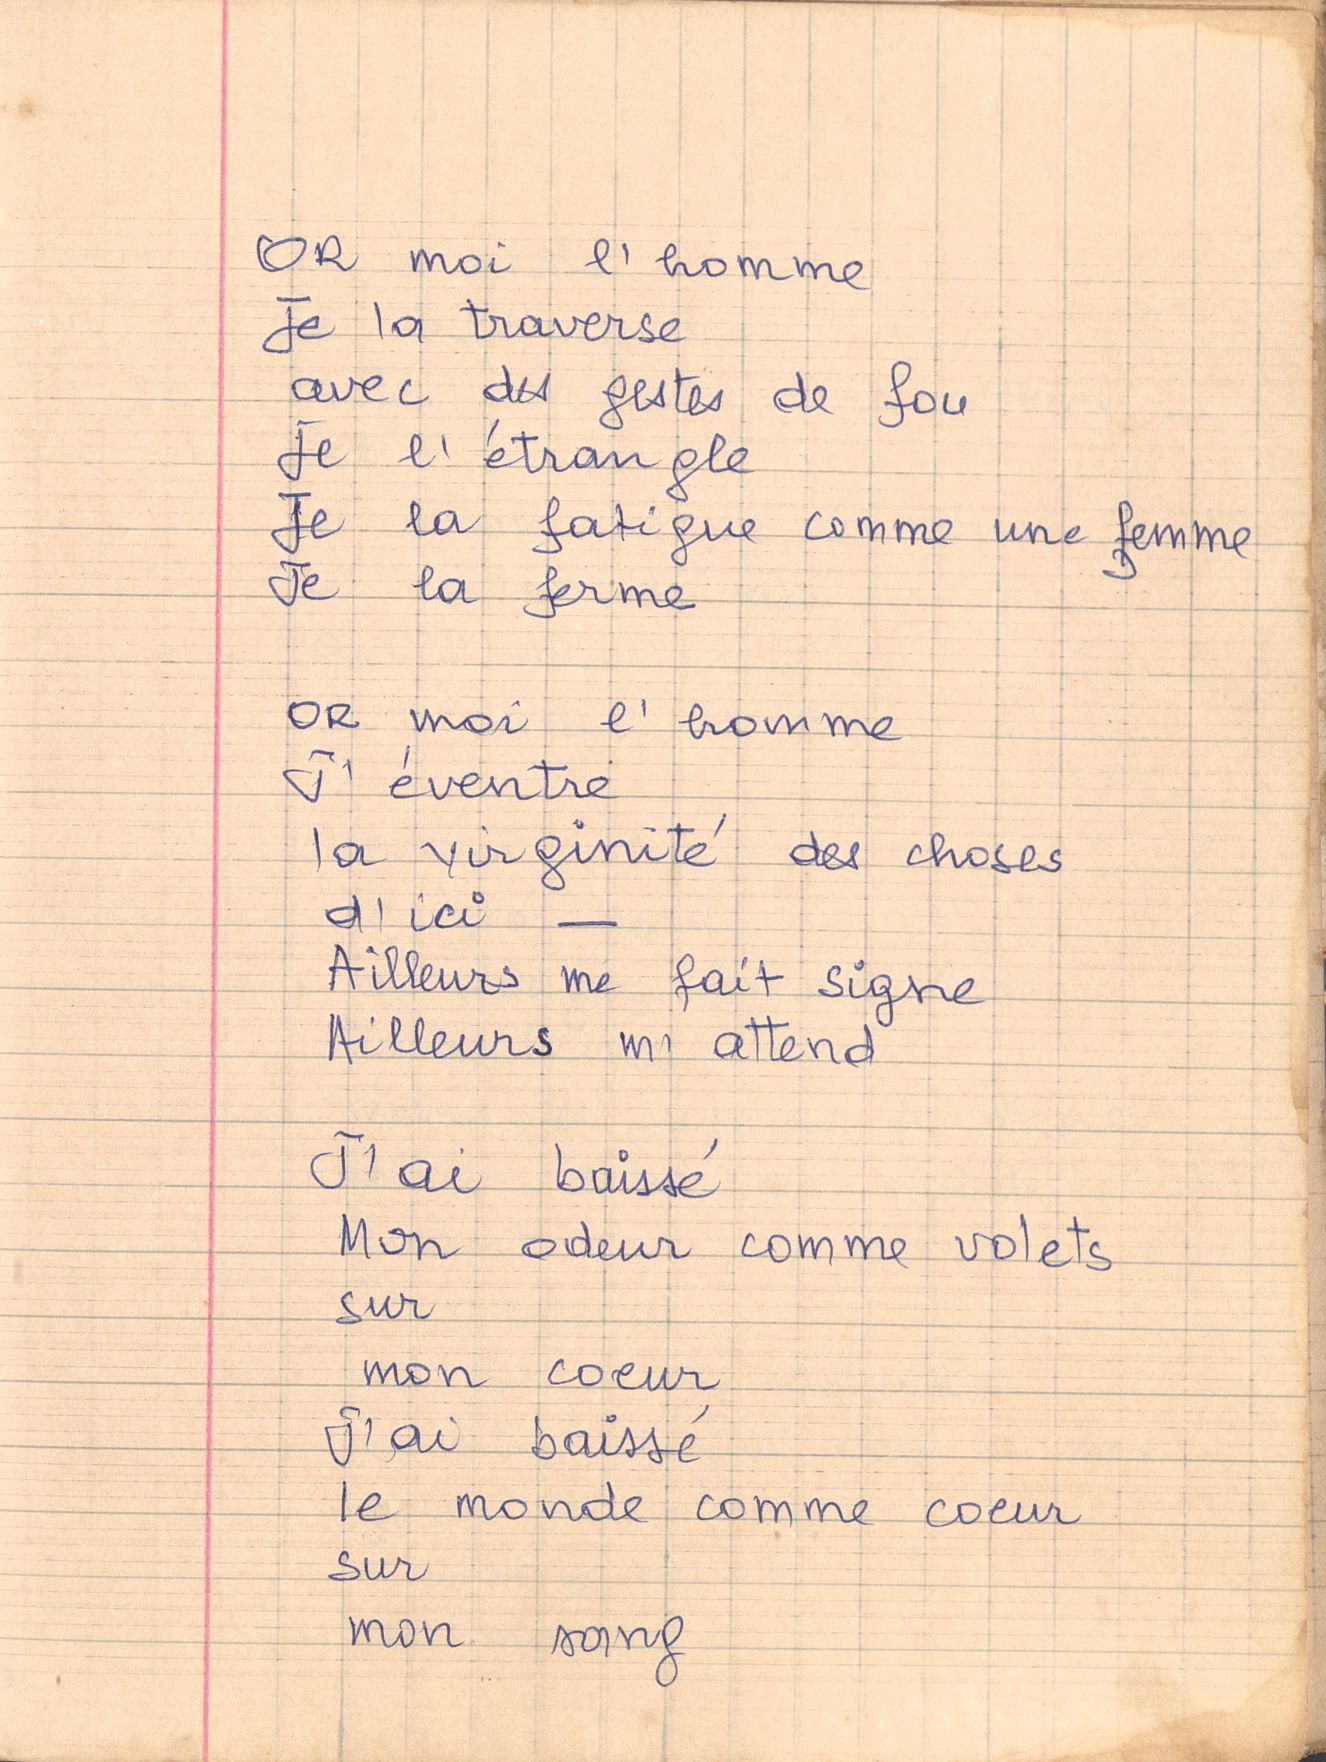 OR moi l'homme
Je la traverse
avec des gestes de fou
Je l'étrangle
Je la fatigue comme une femme
Je la ferme
OR moi l'homme
J'éventre
la virginité des choses
d'ici —
Ailleurs me fait signe
Ailleurs m'attend
J'ai baissé
Mon odeur comme volets
sur
mon coeur
J'ai baissé
le monde comme coeur
sur
mon sang